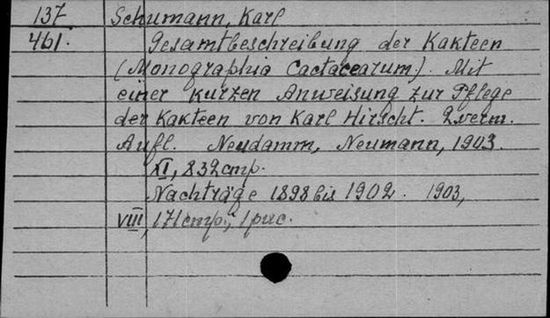 137 Schumann, Karl
461. Gesamtbeschreibung der Kakteen
(Monographia Cactacearum). Mit
einer kurzen Anweisung zur Pflege
der Kakteen von Karl Hirscht. 2 verm.
Aufl. Neudamm, Neumann, 1903
XI, 832 стр.
Nachträge 1898 bis 1902. 1903,
VIII, 171 стр.; 1 рис.